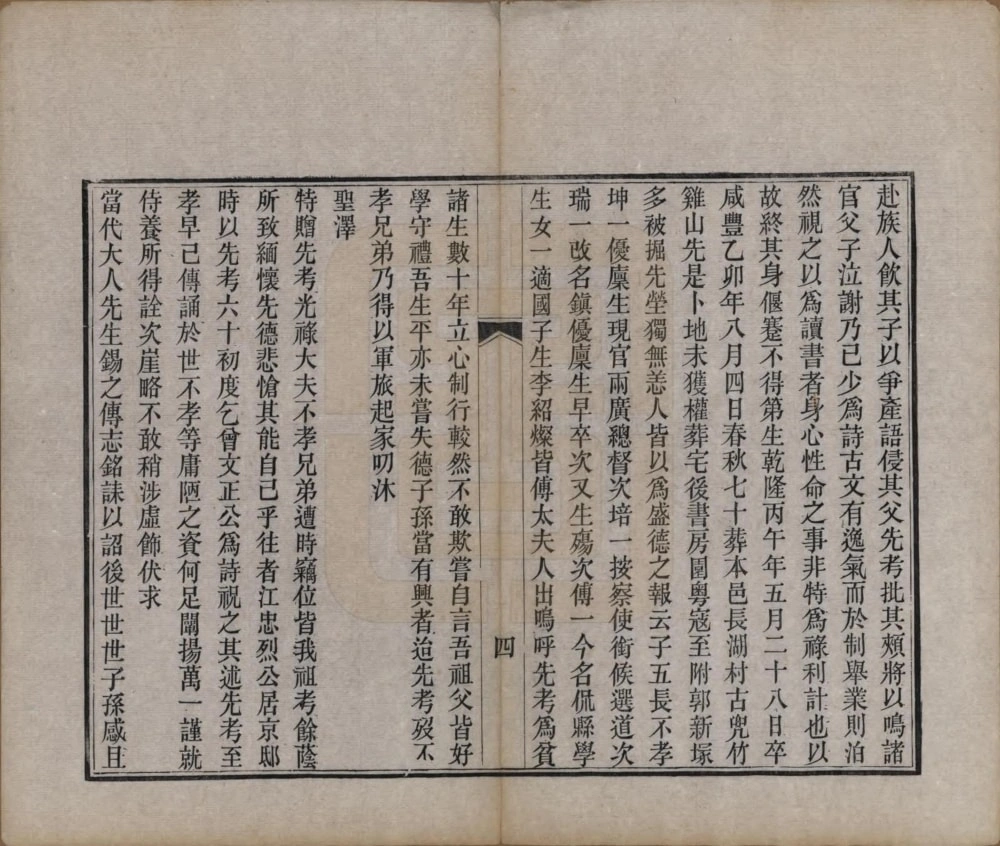 赴族人飲其子以爭產語侵其父先考批其頰將以鳴諸
官父子泣謝乃已少爲詩古文有逸氣而於制舉業則泊
然視之以爲讀書者身心性命之事非特爲祿利計也以
故終其身偃蹇不得第生乾隆丙午年五月二十八日卒
咸豐乙卯年八月四日春秋七十葬本邑長湖村古兜竹
雞山先是卜地未獲權葬宅後書房圍粵寇至附郭新塚
多被掘先塋獨無恙人皆以爲盛德之報云子五長不孝
坤一優廩生現官兩廣總督次培一按察使銜候選道次
瑞一改名鎮優廩生早卒次又生殤次傅一今名侃縣學
生女一適國子生李紹燦皆傅太夫人出嗚呼先考爲貧
四
諸生數十年立心制行較然不敢欺嘗自言吾祖父皆好
學守禮吾生平亦未嘗失德子孫當有興者迨先考歿不
孝兄弟乃得以軍旅起家叨沐
聖澤
特贈先考光祿大夫不孝兄弟遭時竊位皆我祖考餘蔭
所致緬懷先德悲愴其能自已乎往者江忠烈公居京邸
時以先考六十初度乞曾文正公爲詩祝之其述先考至
孝早已傳誦於世不孝等庸陋之資何足闡揚萬一謹就
侍養所得詮次崖略不敢稍涉虛飾伏求
當代大人先生錫之傳志銘誄以詔後世世世子孫感且